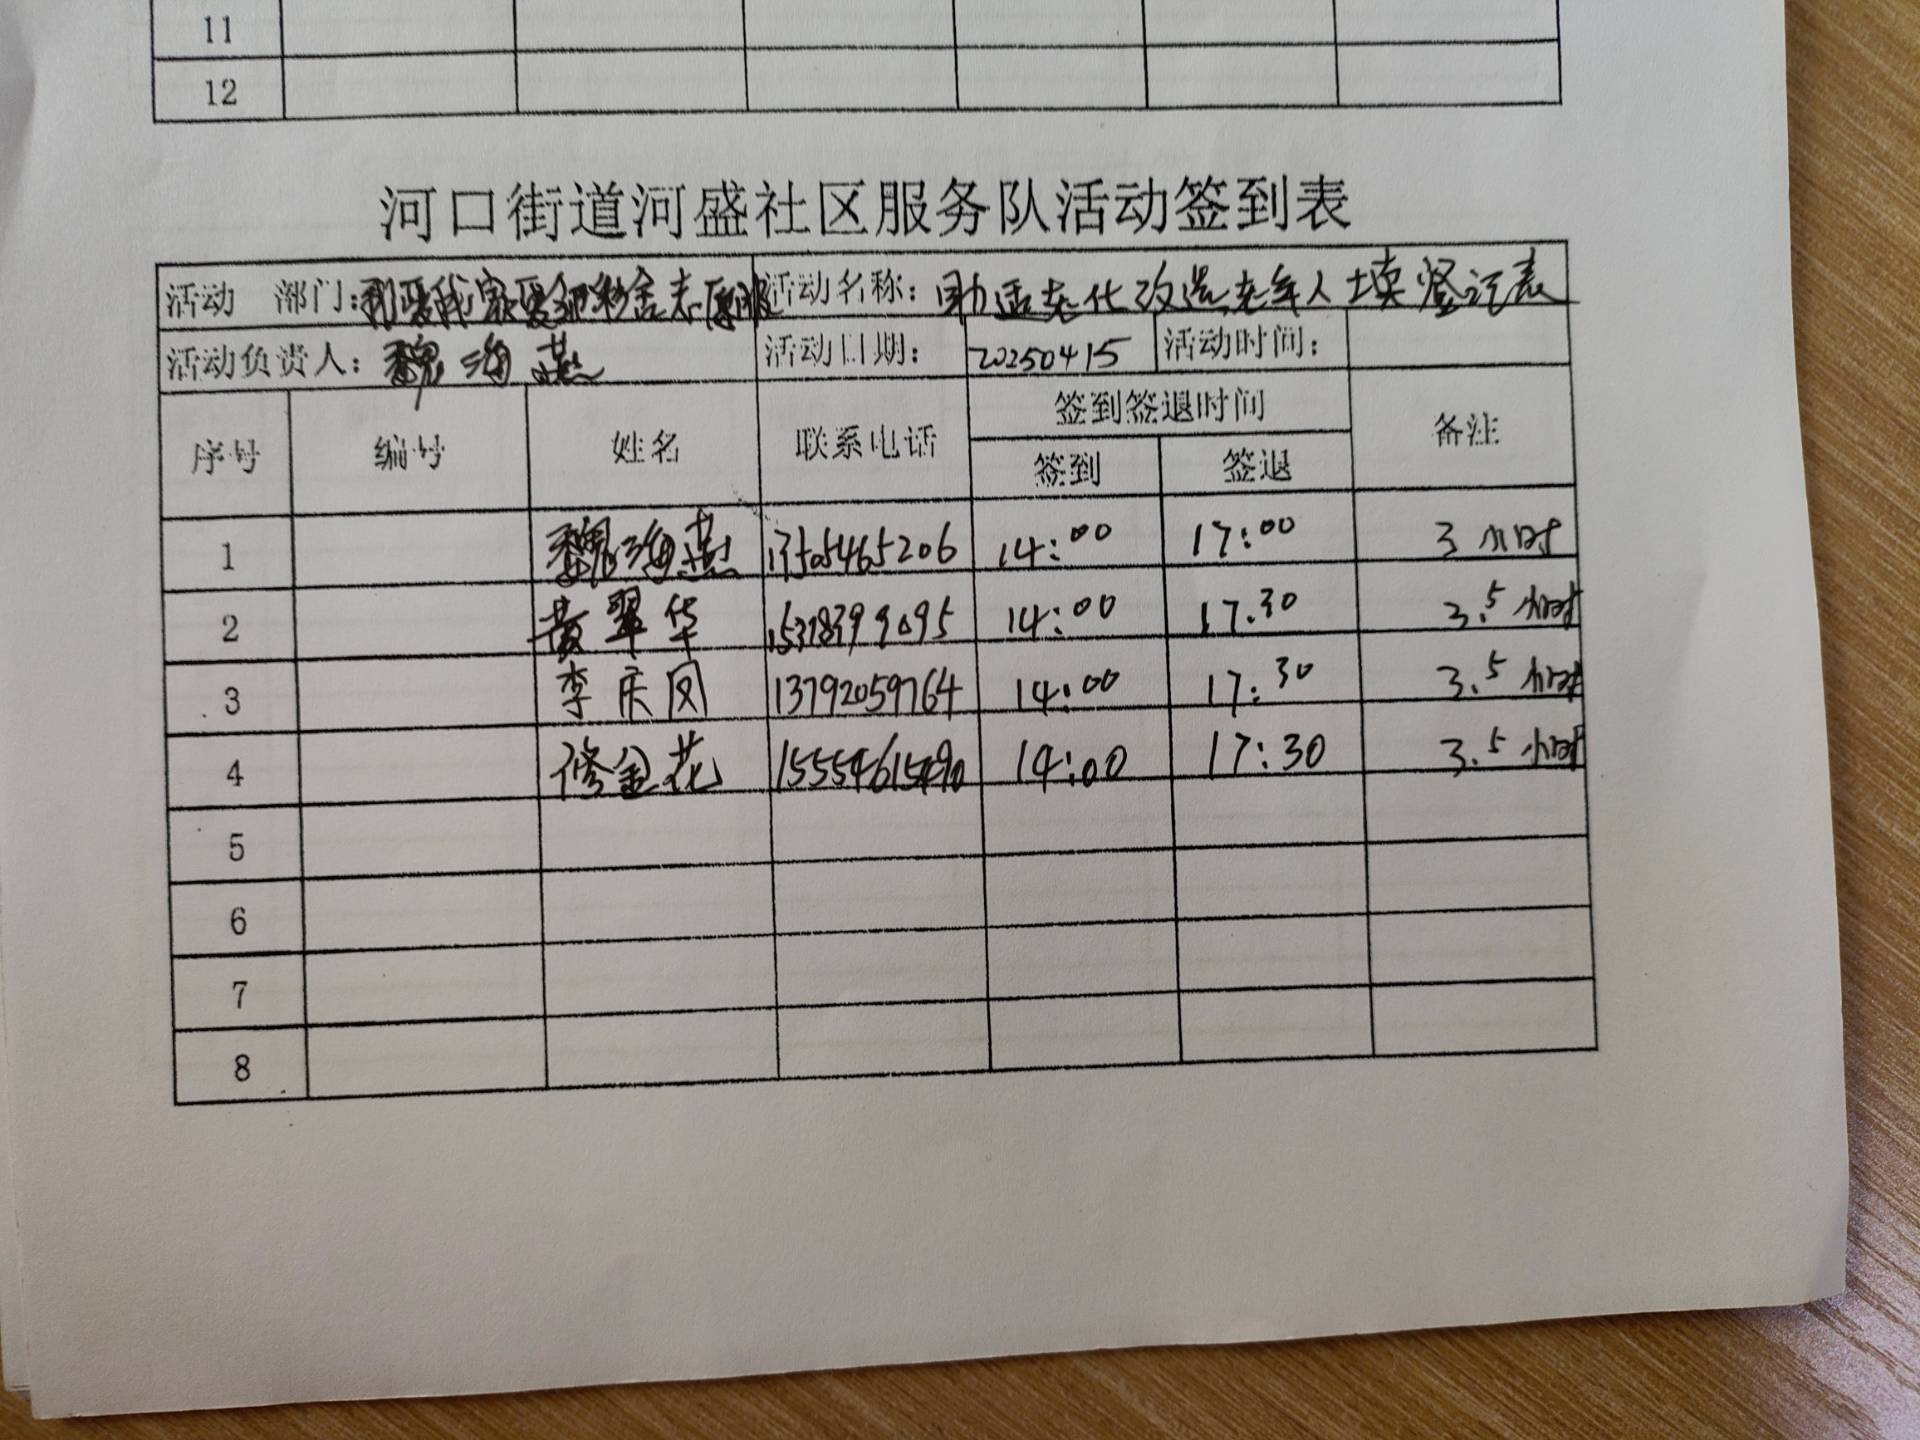 11
12
河口街道河盛社区服务队活动签到表
活动 部门: 活动名称: 助适老化改造老年人填登记表
活动负责人: 魏海燕 活动日期: 20250415 活动时间:
序号 编号 姓名 联系电话 签到签退时间 备注
签到 签退
1 魏海燕 14:00 17:00 3小时
2 黄翠华 14:00 17.30 3.5小时
3 李庆凤 13792059764 14:00 17:30 3.5小时
4 修金花 14:00 17:30 3.5小时
5
6
7
8